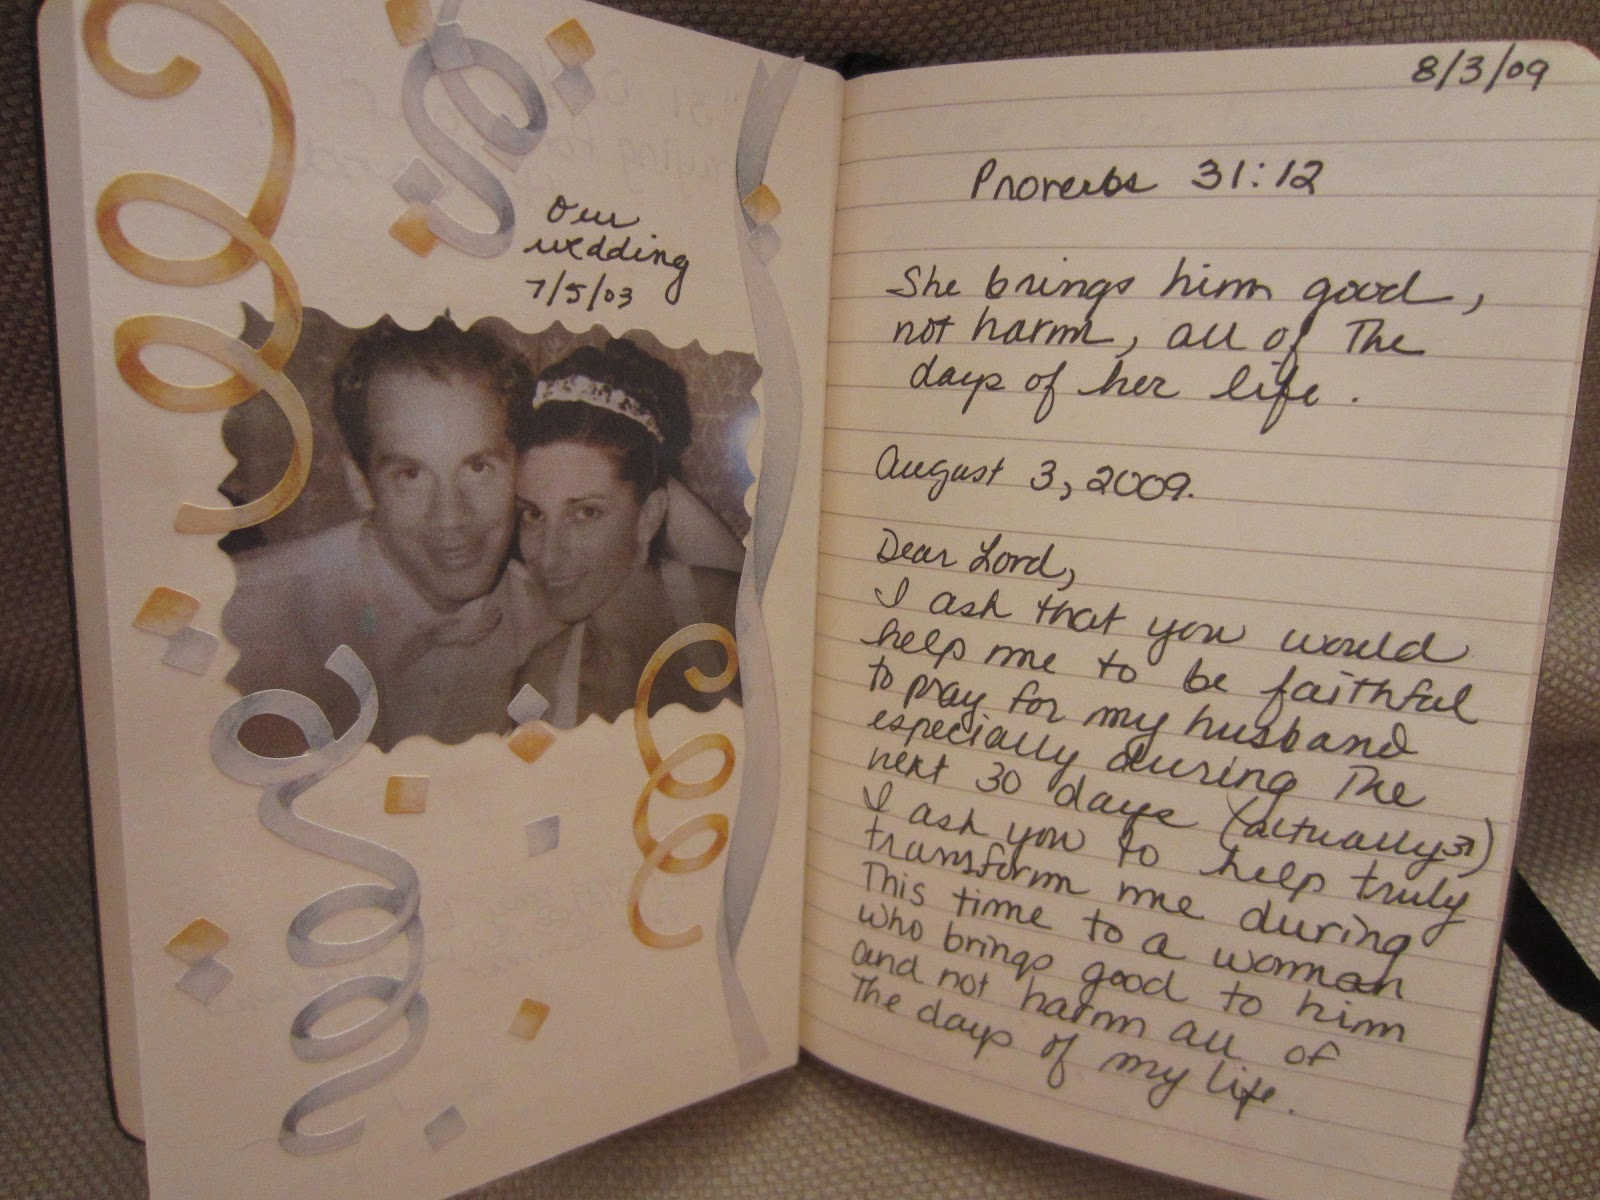 Our
wedding
7/5/03
8/3/09
Proverbs 31:12
She brings him good,
not harm, all of The
days of her life.
August 3, 2009.
Dear Lord,
I ask that you would
help me to be faithful
to pray for my husband
especially during The
next 30 days (actually 31)
I ask you to help truly
transform me during
This time to a woman
who brings good to him
and not harm all of
The days of my life.